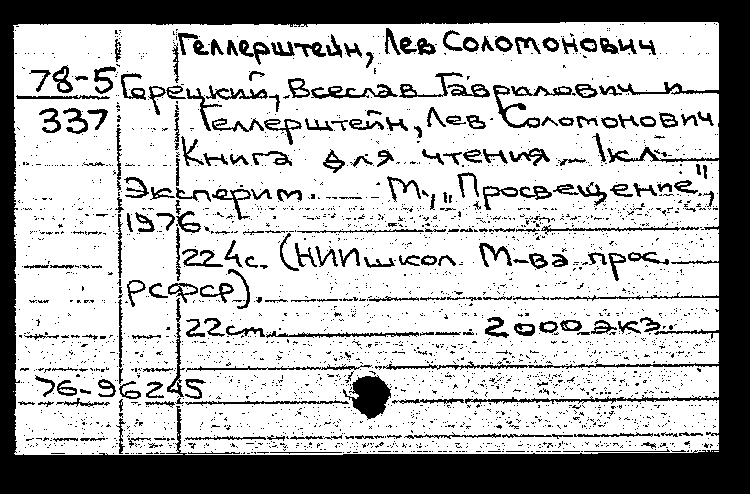 Геллерштейн, Лев Соломонович
78-5 Горецкий, Всеслав Гаврилович и
337 Геллерштейн, Лев Соломонович
Книга для чтения 1кл.
Эксперим. М., „Просвещение",
1976.
224с. (НИИшкол М-ва прос.
РСФСР).
22cm. 2000 экз.
76-96245